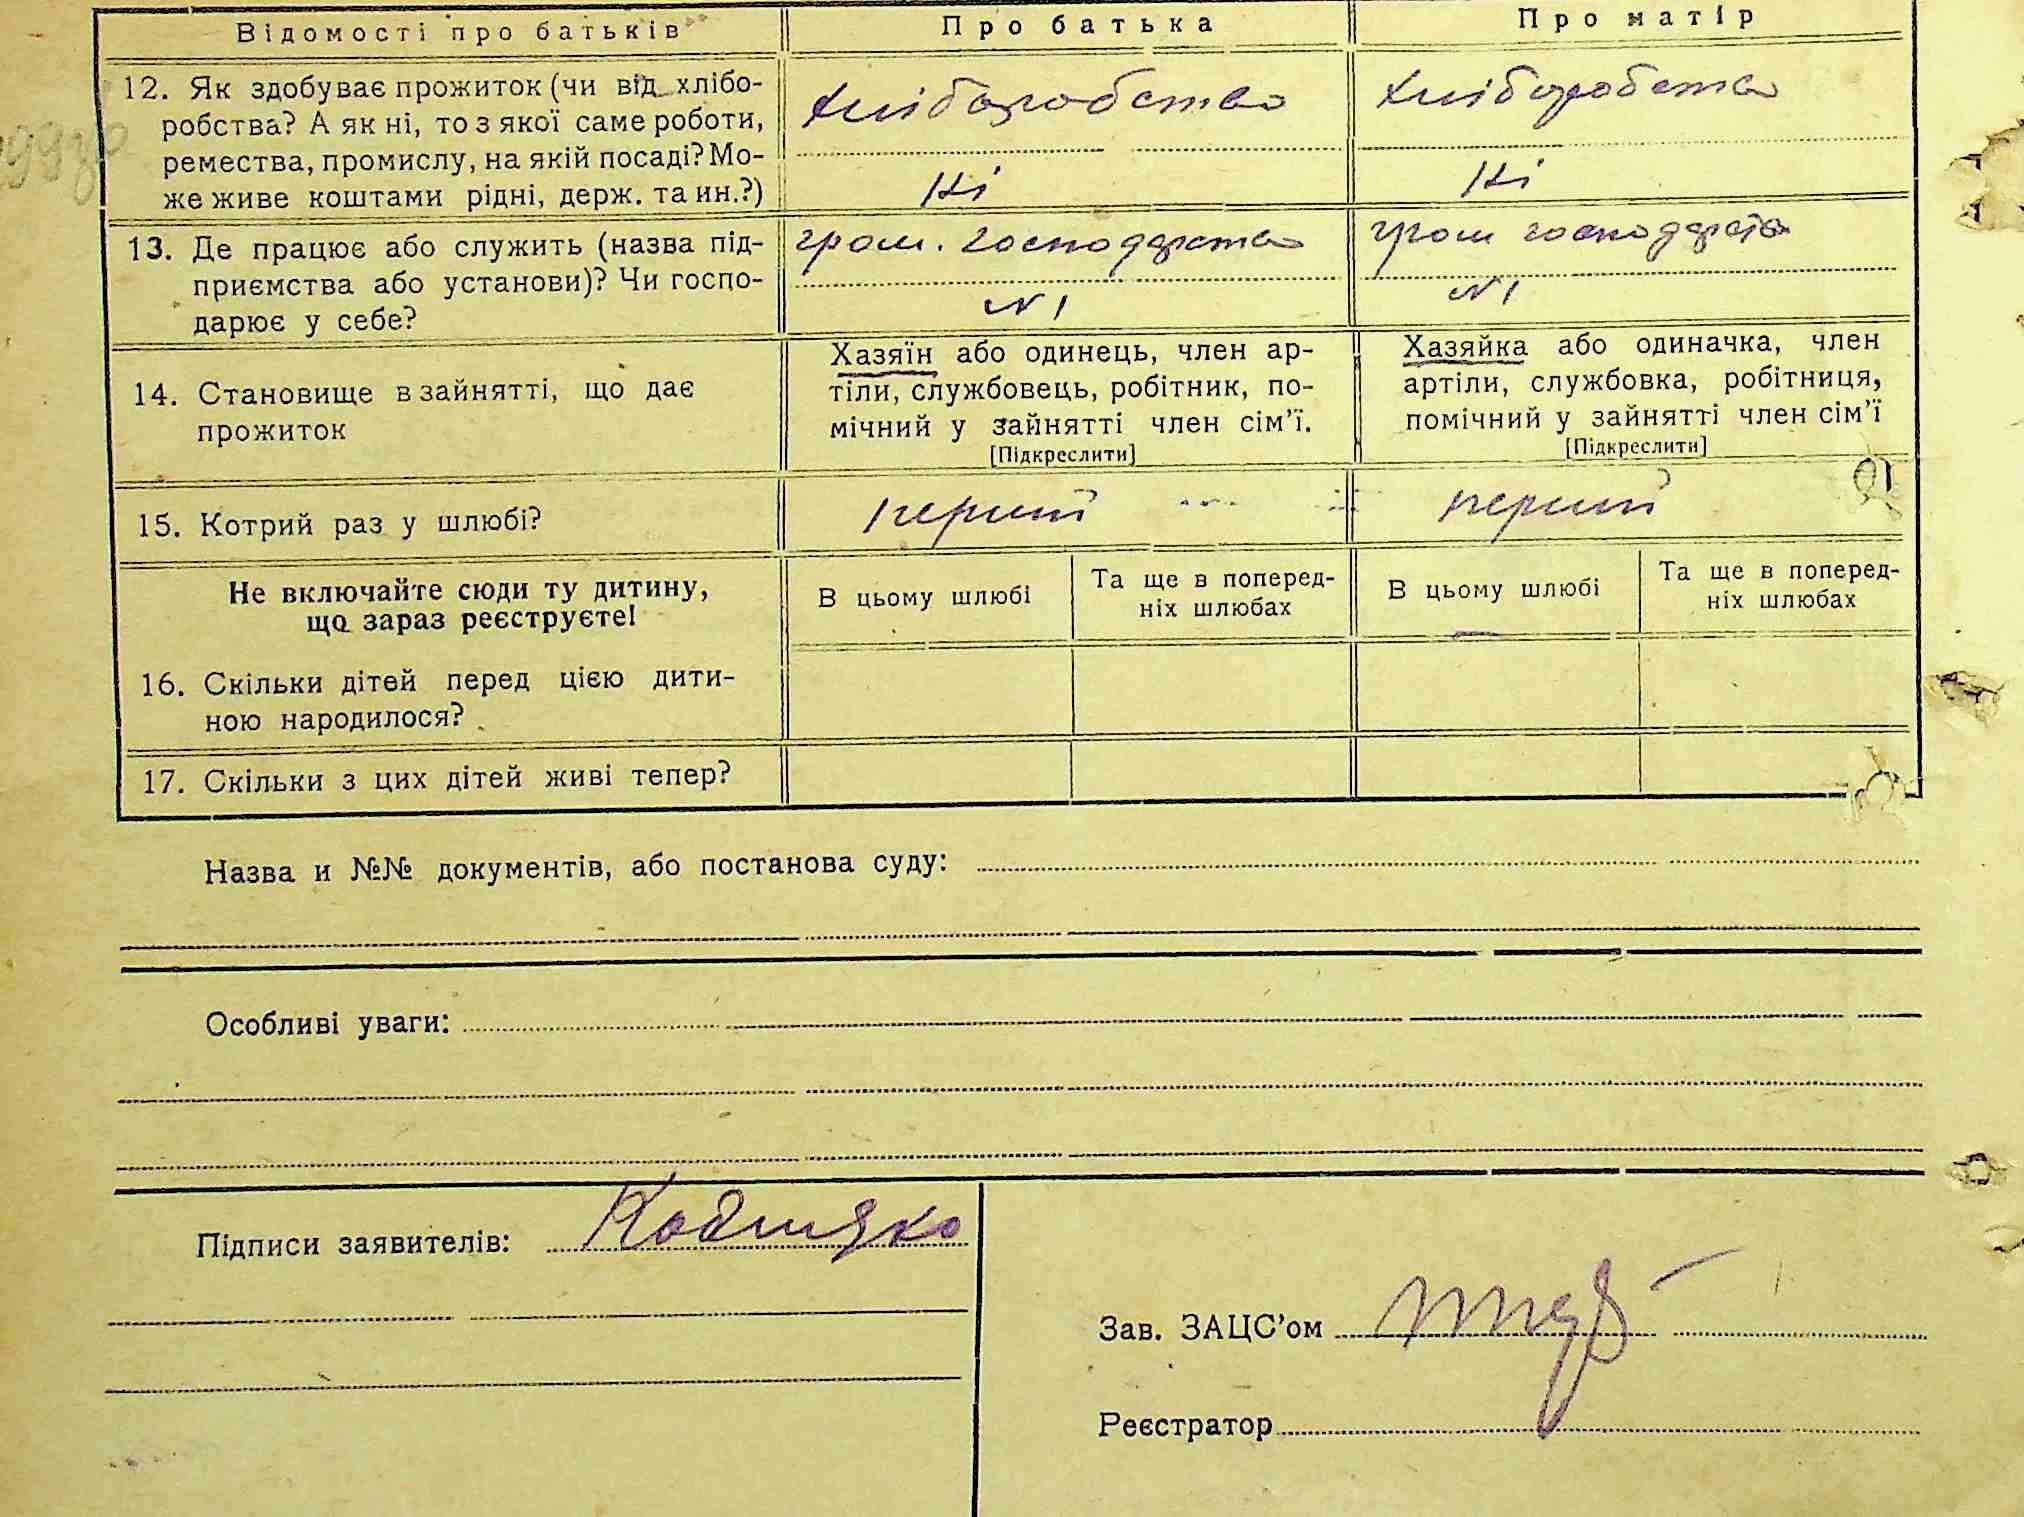 Відомості про батьків Про батька Про матір
12. Як здобуває прожиток (чи від хлібо-
робства? А як ні, то з якої саме роботи,
ремества, промислу, на якій посаді? Мо-
же живе коштами рідні, держ. та ин.?)
хліборобство
Ні
хліборобство
Ні
13. Де працює або служить (назва під-
приємства або установи)? Чи госпо-
дарює у себе?
гром. господарство
N 1
гром господарство
N 1
14. Становище в зайнятті, що дає
прожиток
Хазяїн або одинець, член ар-
тіли, службовець, робітник, по-
мічний у зайнятті член сім'ї.
[Підкреслити]
Хазяйка або одиначка, член
артіли, службовка, робітниця,
помічний у зайнятті член сім'ї
[Підкреслити]
15. Котрий раз у шлюбі? перший перший
Не включайте сюди ту дитину,
що зараз реєструєте!
В цьому шлюбі
Та ще в поперед-
ніх шлюбах
В цьому шлюбі
Та ще в поперед-
ніх шлюбах
16. Скільки дітей перед цією дити-
ною народилося?
17. Скільки з цих дітей живі тепер?
Назва и №№ документів, або постанова суду:
Особливі уваги:
Підписи заявителів:
Зав. ЗАЦС'ом
Реєстратор